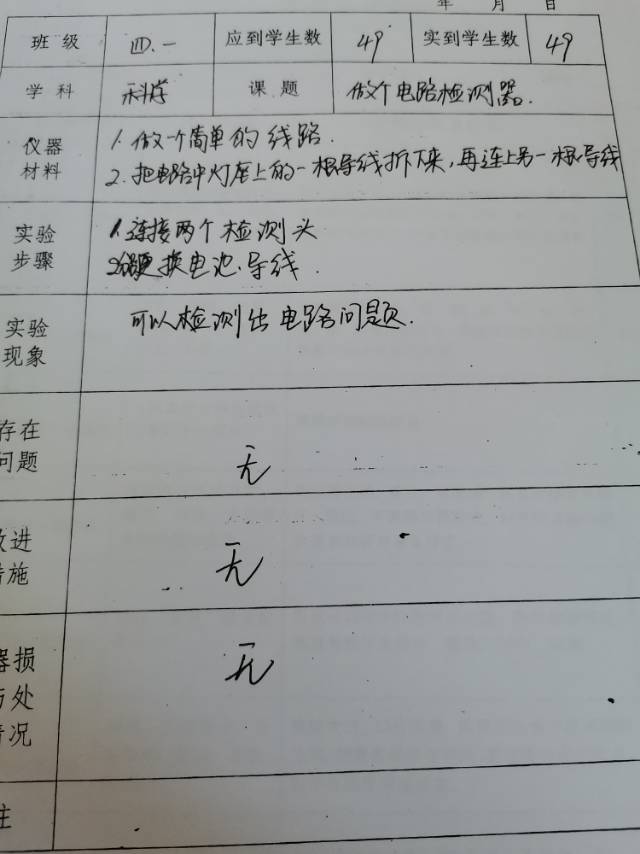 年 月 日
班级 四.一 应到学生数 49 实到学生数 49
学科 科学 课题 做个电路检测器.
仪器材料 1. 做一个简单的线路.
2. 把电路中灯座上的一根导线拆下来,再连上另一根导线
实验步骤 1. 连接两个检测头
2. 换电池.导线.
实验现象 可以检测出电路问题.
存在问题 无
改进措施 无
器损 与处 情况 无
注